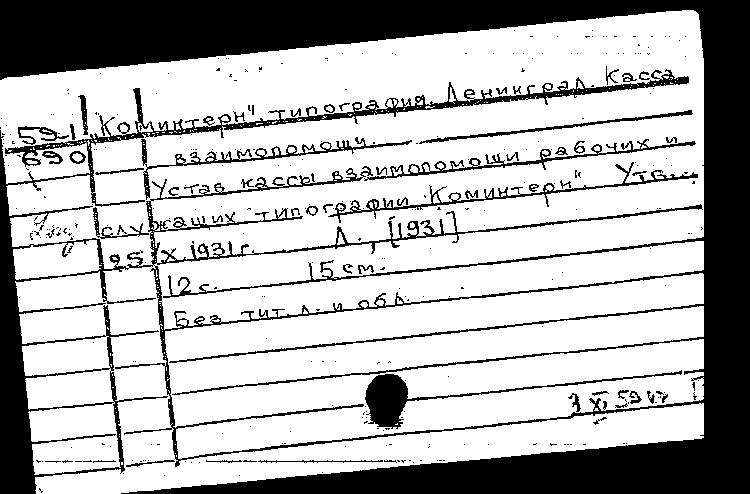 59-1
690
„Коминтерн", типография. Ленинград. Касса
взаимопомощи.
Устав кассы взаимопомощи рабочих и
служащих типографии „Коминтерн". Утв...
25/X 1931г. Л., [1931]
12 с. 15 см.
Без тит. л. и обл.
XI 59